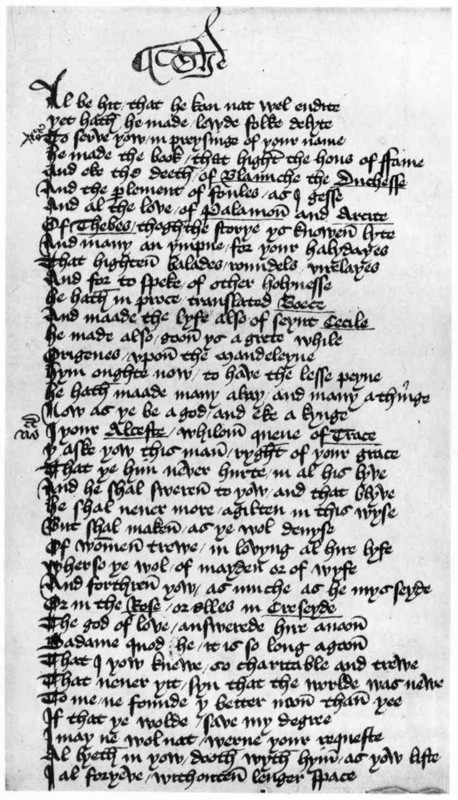 Al be hit / that he kan nat wel endite
Yet hath he made / lewde folke delyte
To serve yow / in preysinge of your name
He made the book / that hight the hous of ffame
And eke the deeth of Blaunche the Duchesse
And the plement of foules / as I gesse
And al the love / of Palamon and Arcite
Of Thebes / thogh the storye ys knowen lyte
And many an ympne / for your halydayes
That highten balades / roundels / virelayes
And for to speke of other holynesse
He hath in prose translated Boece
And maade the lyfe also of seynt Cecile
He made also / goon ys a grete while
Origenes / vpon the Maudeleyne
Hym oughte now / to have the lesse peyne
He hath maade many a lay / and many a thinge
Now as ye be a god / and eke a kynge
I your Alceste / whilom quene of Trace
Y aske yow this man / ryght of your grace
That ye him never hurte / in al his lyve
And he shal sweren to yow / and that blyve
He shal never more / agilten in this wyse
But shal maken / as ye wol devyse
Of women trewe / in lovyng al hire lyfe
Wherso ye wol / of mayden or of wyfe
And forthren yow / as muche as he mysseyde
Or in the Rose / or elles in Creseyde
The god of love / answerede hire anoon
Madame quod he / it is so long agoon
That I yow knewe / so charitable and trewe
That never yit / syn that the worlde was newe
To me ne founde y better noon than yee
If that ye wolde / save my degree
I may ne wol nat / werne your requeste
Al lyeth in yow / dooth wyth hym / as yow liste
I al foryeve / withouten lenger space